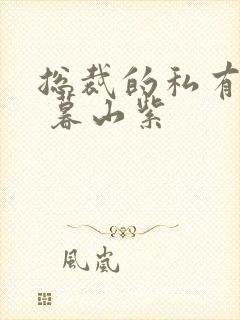 总裁的私有
暮山紫
風嵐